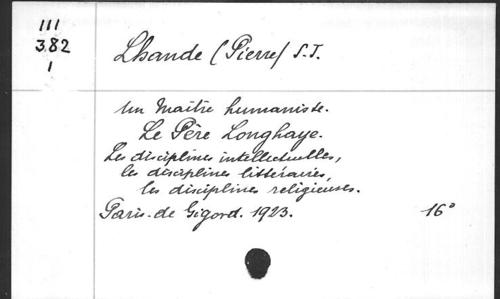 III
382
1
Lhande (Pierre) S.J.
Un Maître humaniste.
Le Père Longhaye.
Les disciplines intellectuelles,
les disciplines littéraires,
les disciplines religieuses.
Paris. de Gigord. 1923. 16°